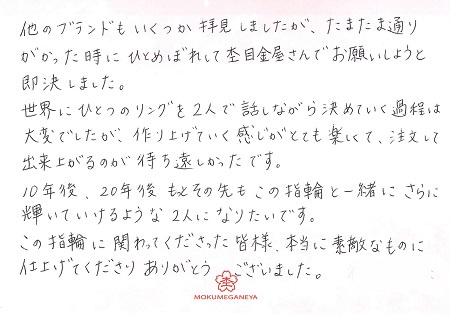 他のブランドもいくつか拝見しましたが、たまたま通り
がかった時にひとめぼれして杢目金屋さんでお願いしようと
即決しました。
世界にひとつのリングを2人で話しながら決めていく過程は
大変でしたが、作り上げていく感じがとても楽しくて、注文して
出来上がるのが待ち遠しかったです。
10年後、20年後もっとその先もこの指輪と一緒にさらに
輝いていけるような2人になりたいです。
この指輪に関わってくださった皆様、本当に素敵なものに
仕上げてくださりありがとうございました。
MOKUMEGANEYA